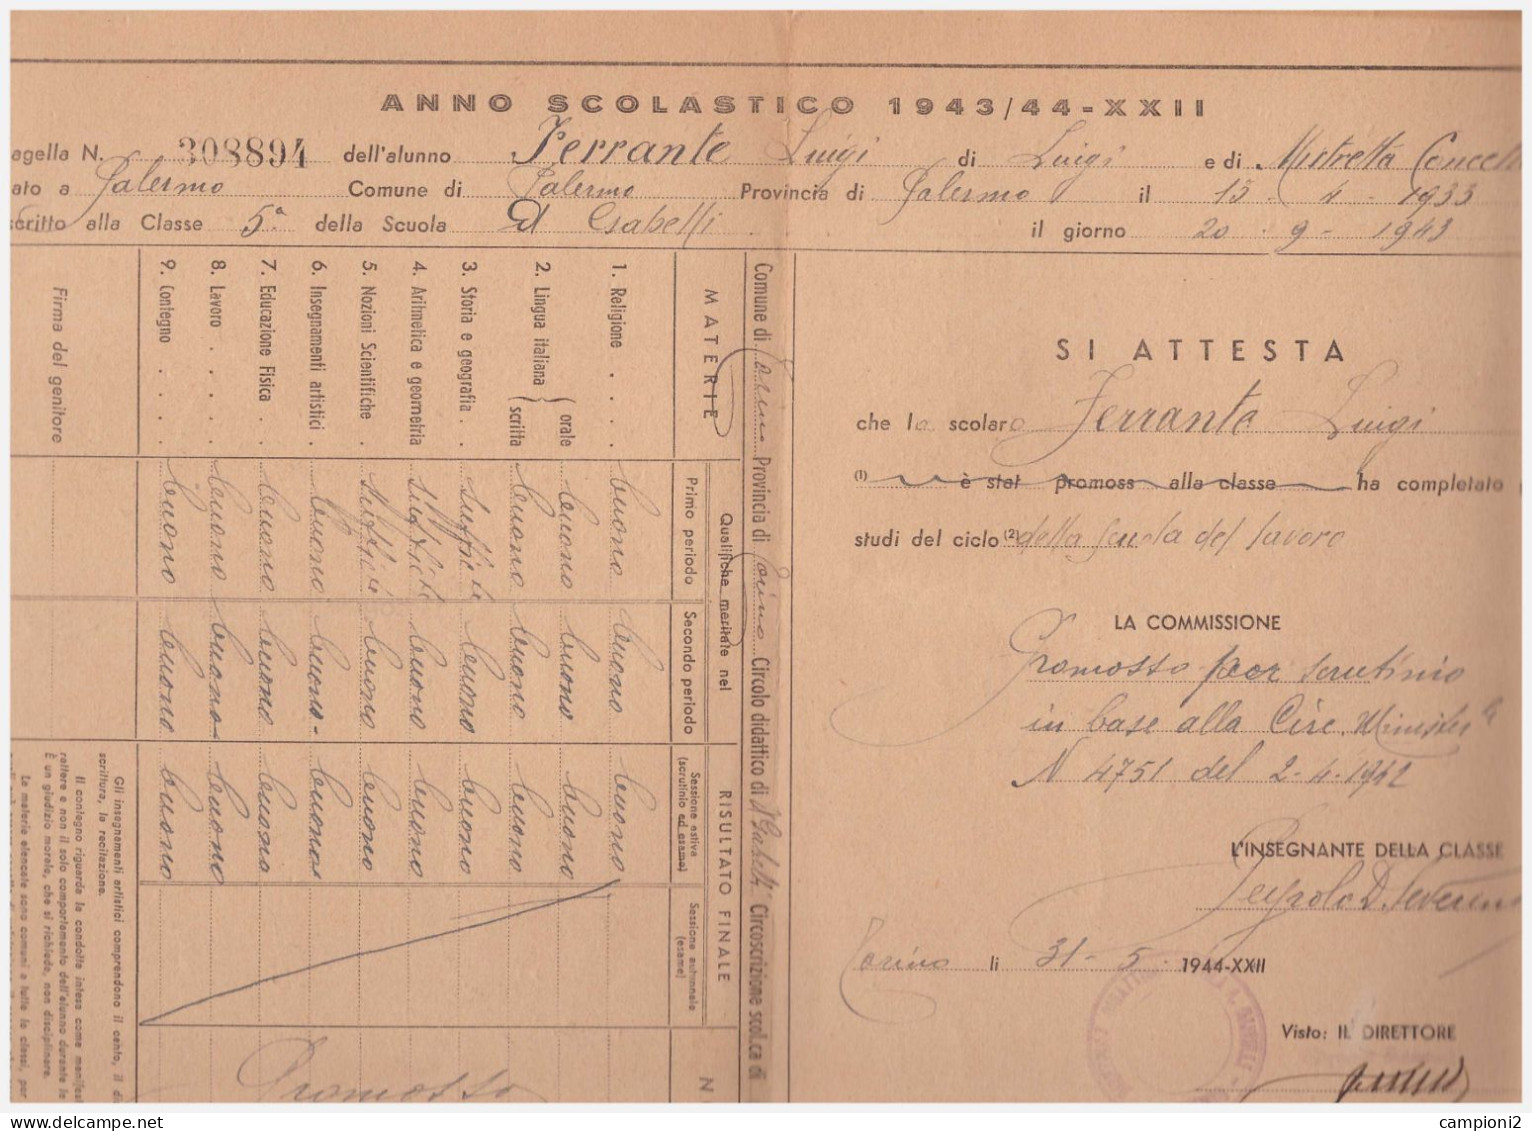 ANNO SCOLASTICO 1943/44-XXII
agella N. 308894 dell'alunno Ferrante Luigi di Luigi e di Mistretta
ato a Palermo Comune di Palermo Provincia di Palermo il 15 - 4 - 1933
scritto alla Classe 5a della Scuola Gabelli il giorno 20 - 9 - 1943
Comune di Torino Provincia di Torino Circolo didattico di Gabelli Circoscrizione scol.ca di
MATERIE
Qualifiche meritate nel
RISULTATO FINALE
Primo periodo
Secondo periodo
Sessione estiva
(scrutinio ed esame)
Sessione autunnale
(esame)
N
1. Religione . . . buono buono buono
2. Lingua italiana { orale buono buono buono
scritta buono buono buono
3. Storia e geografia . . buono buono
4. Aritmetica e geometria buono buono
5. Nozioni Scientifiche . buono buono
6. Insegnamenti artistici . buono buono buono
7. Educazione Fisica . . buono buono buono
8. Lavoro . . . . buono buono buono
9. Contegno . . . . buono buono buono
Promosso
Firma del genitore
Gli insegnamenti artistici comprendono il canto, il di
scrittura, la recitazione.
Il contegno riguarda le condotte intesa come manifest
rattere e non il solo comportamento dell'alunno durante le
È un giudizio morale, che si richiede, non disciplinare.
Le materie elencate sono comuni a tutte le classi, per
SI ATTESTA
che lo scolaro Ferrante Luigi
(1) è stat promoss alla classe ha completato
studi del ciclo (2) della Scuola del lavoro
LA COMMISSIONE
Promosso per scrutinio
in base alla Circ. Minister le
N 4751 del 2-4-1942
L'INSEGNANTE DELLA CLASSE
Torino li 31 - 5 - 1944-XXII
Visto: IL DIRETTORE
campioni2